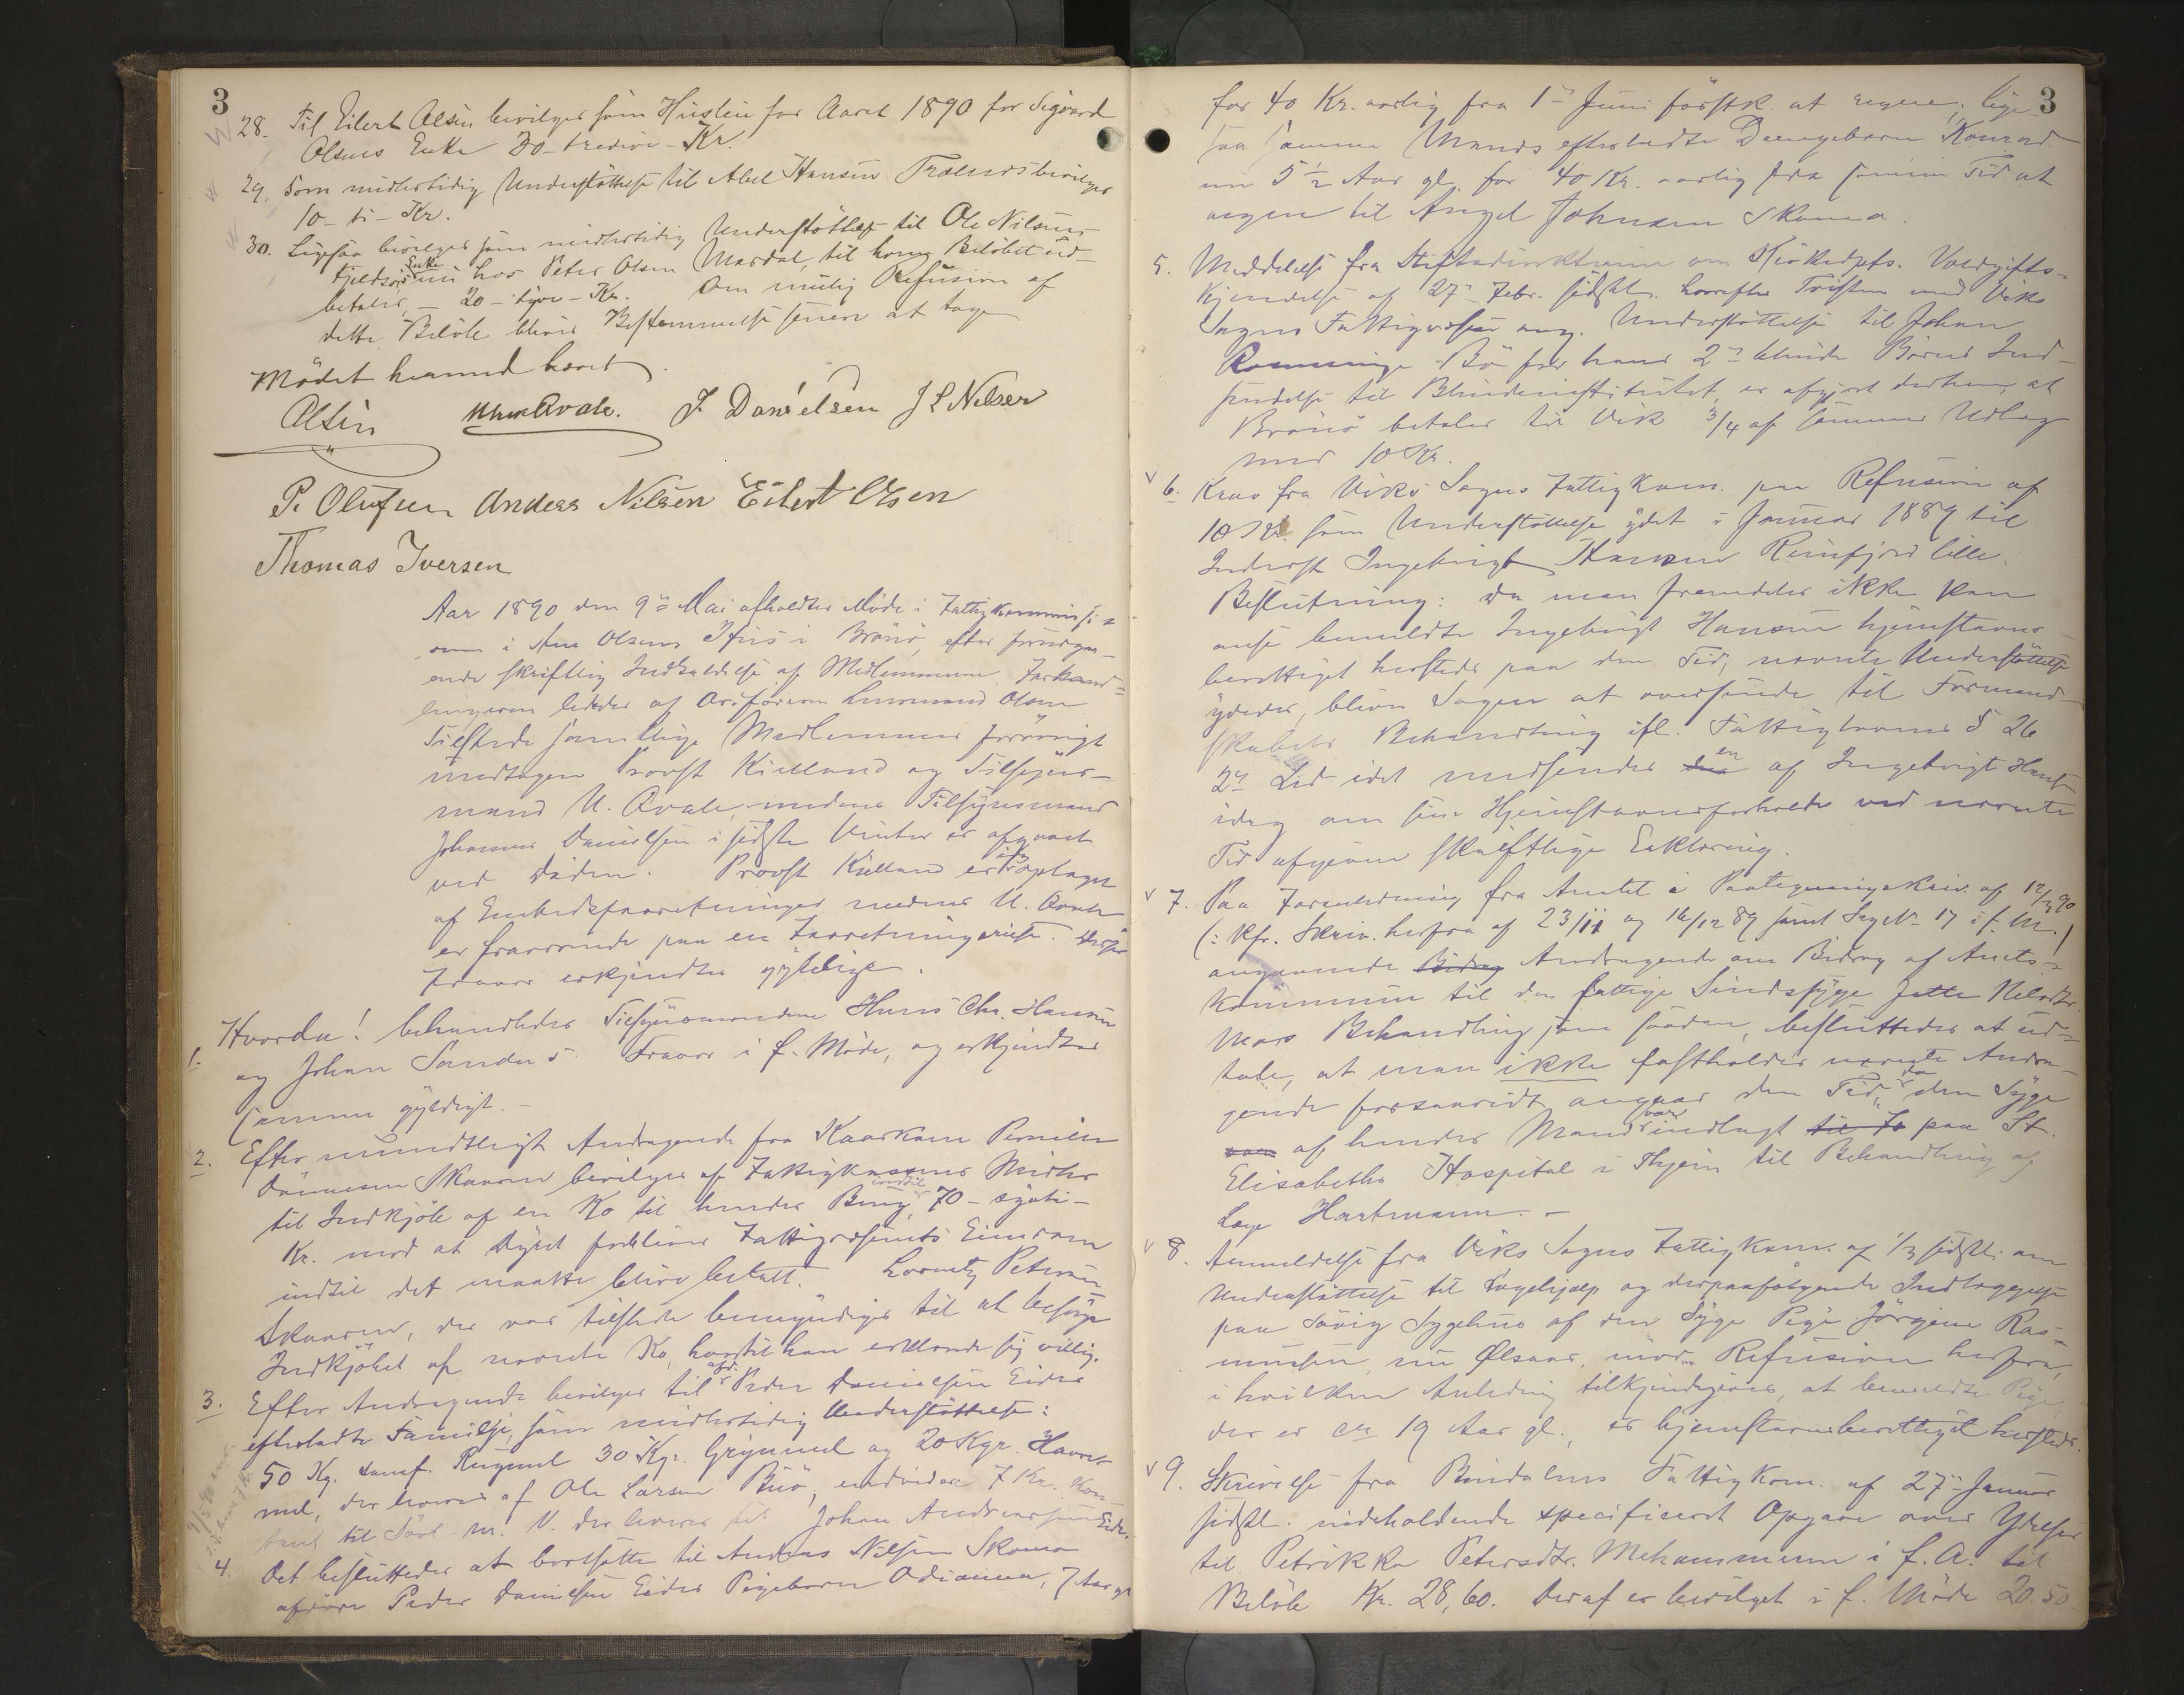 3
28. Til Eilert Olsen bevilges som Husleie for Aaret 1890 for Sigvard
Olsens Enke 30 - tredive - Kr.
29. Som midlertidig Understöttelse til Abel Hansen Trælnes bevilges
10 - ti - Kr.
30. Ligesaa bevilges som midlertidig Understöttelse til Ole Nilsens
Enke
hos Peter Olsen Mardal, til hvem Belöbet ud-
betales, - 20 - tyve - Kr. Om mulig Refusion af
dette Belöb blive Bestemmelse senere at tage
Mödet hermed hævet
Olsen J. Danielsen J L Nilsen
P. Olufsen Anders Nilsen Eilert Olsen
Thomas Iversen
Aar 1890 den 9de Mai afholdtes Möde i Fattigkommissi-
onen i Olsens Hus i Brönö, efter forudgaa-
ende skriftlig Indkaldelse af Medlemmerne. Forhand-
lingerne lededes af Ordföreren Lensmand Olsen
Tilstede samtlige Medlemmer forövrigt
undtagen Provst Kielland og Tilsyns-
mand U. Qvale, medens Tilsynsmand
Johannes Danielsen i sidste Vinter er afgaaet
ved Döden. Provst Kielland er optaget
af Embedsforretninger medens U. Qvale
er fraværende paa en Forretningsreise. Disses
Fravær erkjendtes gyldige.
Hvorda!
1. behandledes Tilsynsmændene Hans Chr. Hansen
og Johan Sanders Fravær i f. Möde, og erkjendtes
samme gyldigt. -
2. Efter mundtligt Andragende fra Kaarkone Pernille
Skaaren bevilges af Fattigkassens Midler
til Indkjöb af en Ko til hendes Brug, indtil 70 - sytti -
Kr. mod at Dyret forbliver Fattigvæsenets Eiendom
indtil det maatte blive betalt. Lorentz Petersen
Skaaren, der var tilstede bemyndiges til at besörge
Indkjöbet af nævnte Ko, hvortil han erklærede sig villig.
3. Efter Andragende bevilges til afd. Peder Danielsen Eides
efterladte Familje, som midlertidig Understöttelse:
50 Kg. Rugmel 30 Kgr. Grynmel og 20 Kgr. Havre-
mel, der leveres af Ole Larsen Buö, endvidere 7 Kr. Kon-
tant til m. V. der leveres til Johan Andreassen Eide.
4. Det besluttedes at bortsætte til Andreas Nilsen Skomo
Peder Danielsen Eides Pigebarn Odianna, 7 Aar gl
3
for 40 Kr. aarlig fra 1ste Juni förstk. at regne; lige-
saa samme Mands efterladte Drengebarn Konrad
nu 5 1/2 Aar gl. for 40 Kr. aarlig fra samme Tid at
regne til Angel Johnsen Skomo.
5. Meddelelse fra Stiftsdirektionen om Kirkedpts. Voldgifts-
kjendelse af 27de Febr. sidstl. hvorefter Tvisten med Viks
Sogns Fattigvæsen ang. Understöttelse til Johan
Bö for hans 2de blinde Börns Ind-
sendelse til Blindeinstitutet, er afgjort derhen, at
Brönö betaler til Vik 3/4 af samme Udlæg
med 10 Kr.
v 6. Krav fra Viks Sogns Fattigkom. paa Refusion af
10 Kr. som Understöttelse ydet i Januar 1889 til
Inderst Ingebrigt Hansen Reinfjord lille.
Beslutning: Da man fremdeles ikke kan
anse bemeldte Ingebrigt Hansen hjemstavns-
berettiget hersteds paa den Tid, nævnte Understöttelse
ydedes, bliver Sagen at oversende til Formand-
skabets Behandling ifl. Fattiglovens § 26
2det Led idet medsendes en af Ingebrigt Hansen
idag om sine Hjemstavnsforholde ved nævnte
Tid afgiven skriftlige Erklæring.
v 7. Paa Foranledning fra Amtet i Paategningsskriv. af 12/3 90
(: Kfr. Skriv. herfra af 23/11 og 16/12 89 samt Sag No 17 i f. M.)
angaaende Bidrag Andragende om Bidrag af Amts-
kommunen til den fattige Sindssyge Jette
Mars Behandling som saadan, besluttedes at ud-
tale, at man ikke fastholder nævnte Andra-
gende forsaavidt angaar den Tid, da den Syge
af hendes Mand var indlagt paa St.
Elisabeths Hospital i Thjem til Behandling af
Læge Hartmann. -
v 8. Anmeldelse fra Viks Sogns Fattigkom. af 1/3 sidstl. om
Understöttelse til Lægehjælp og derpaafölgende Indlæggelse
paa Sövig Sygehus af den Syge Pige Jörgine Ras-
mussen, nu Ølsaas, mod Refusion herfra,
i hvilken Anledning tilkjendegives, at bemeldte Pige
der er ca 19 Aar gl., er hjemstavnsberettiget hersteds.
v 9. Skrivelse fra Bindalens Fattigkom. af 27de Januar
sidstl. indeholdende specificeret Opgave over Ydelser
til Petrikka Petersdtr. i f. A. til
Belöb Kr. 28,60. Deraf er bevilget i f. Möde 20.50.